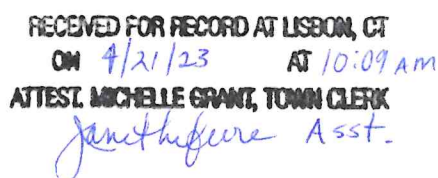 RECEIVED FOR RECORD AT LISBON, CT
ON 4/21/23 AT 10:09 AM
ATTEST. MICHELLE GRANT, TOWN CLERK
Asst.